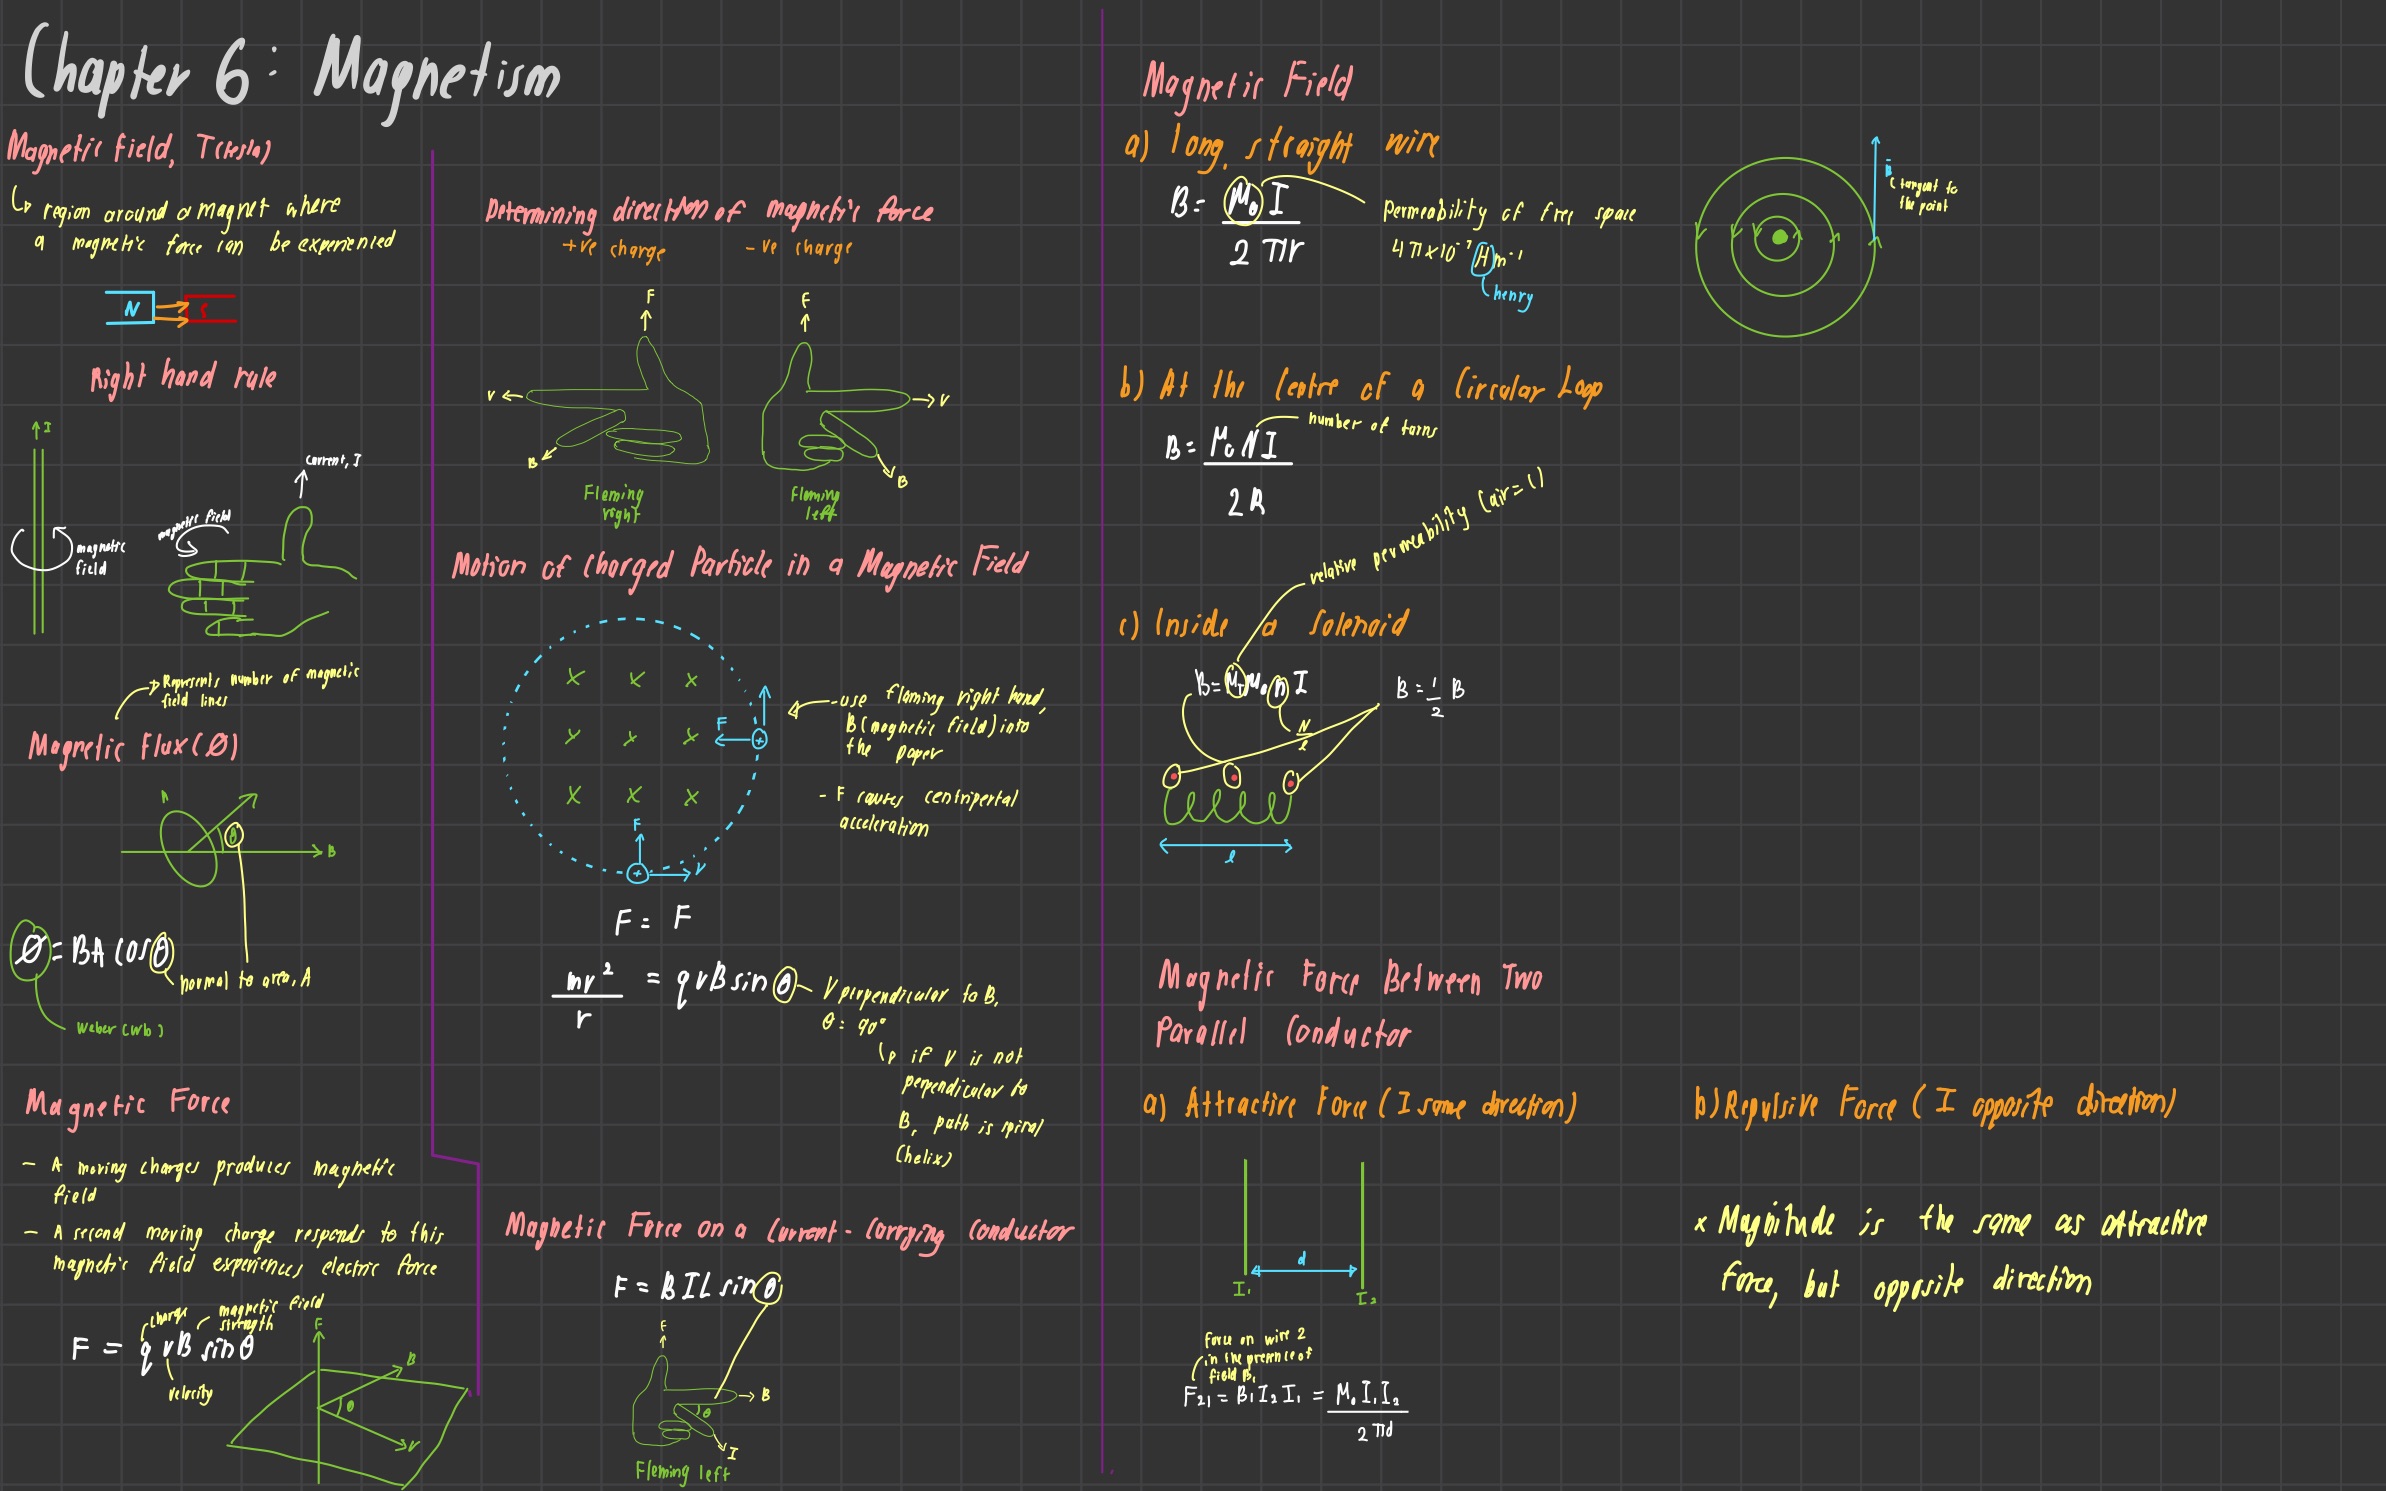 Chapter 6: Magnetism
Magnetic field, T(tesla)
region around a magnet where
a magnetic force can be experienced
N
S
Right hand rule
I
magnetic
field
Current, I
magnetic field
Represents number of magnetic
field lines
Magnetic Flux (Ø)
A
θ
B
Ø = BA cos θ
normal to area, A
Weber (Wb)
Magnetic Force
- A moving charges produces magnetic
field
- A second moving charge responds to this
magnetic field experiences electric force
charge
magnetic field
strength
F = qvB sin θ
velocity
F
B
θ
V
Determining direction of magnetic force
+ve charge
-ve charge
F
V
B
Fleming
right
F
V
B
Fleming
left
Motion of Charged Particle in a Magnetic Field
x x x
x x x
x x x
F
+
F
+
V
- use flaming right hand,
B (magnetic field) into
the paper
- F causes centripertal
acceleration
F = F
mv² / r = qvB sin θ
V perpendicular to B,
θ = 90°
if V is not
perpendicular to
B, path is spiral
(helix)
Magnetic Force on a Current-Carrying Conductor
F = BIL sin θ
F
B
θ
I
Fleming left
Magnetic Field
a) long, straight wire
B = μ₀I / 2πr
Permeability of free space
4π×10⁻⁷ Hm⁻¹
henry
B
tangent to
the point
b) At the Centre of a Circular Loop
B = μ₀NI / 2R
number of turns
relative permeability (air=1)
c) Inside a Solenoid
B = μᵣμ₀nI
N / l
B = 1/2 B
l
Magnetic Force Between Two
Parallel Conductor
a) Attractive Force (I same direction)
d
I₁
I₂
Force on wire 2
in the presence of
field B₁
F₂₁ = B₁I₂I₁ = μ₀I₁I₂ / 2πd
b) Repulsive Force (I opposite direction)
x Magnitude is the same as attractive
force, but opposite direction